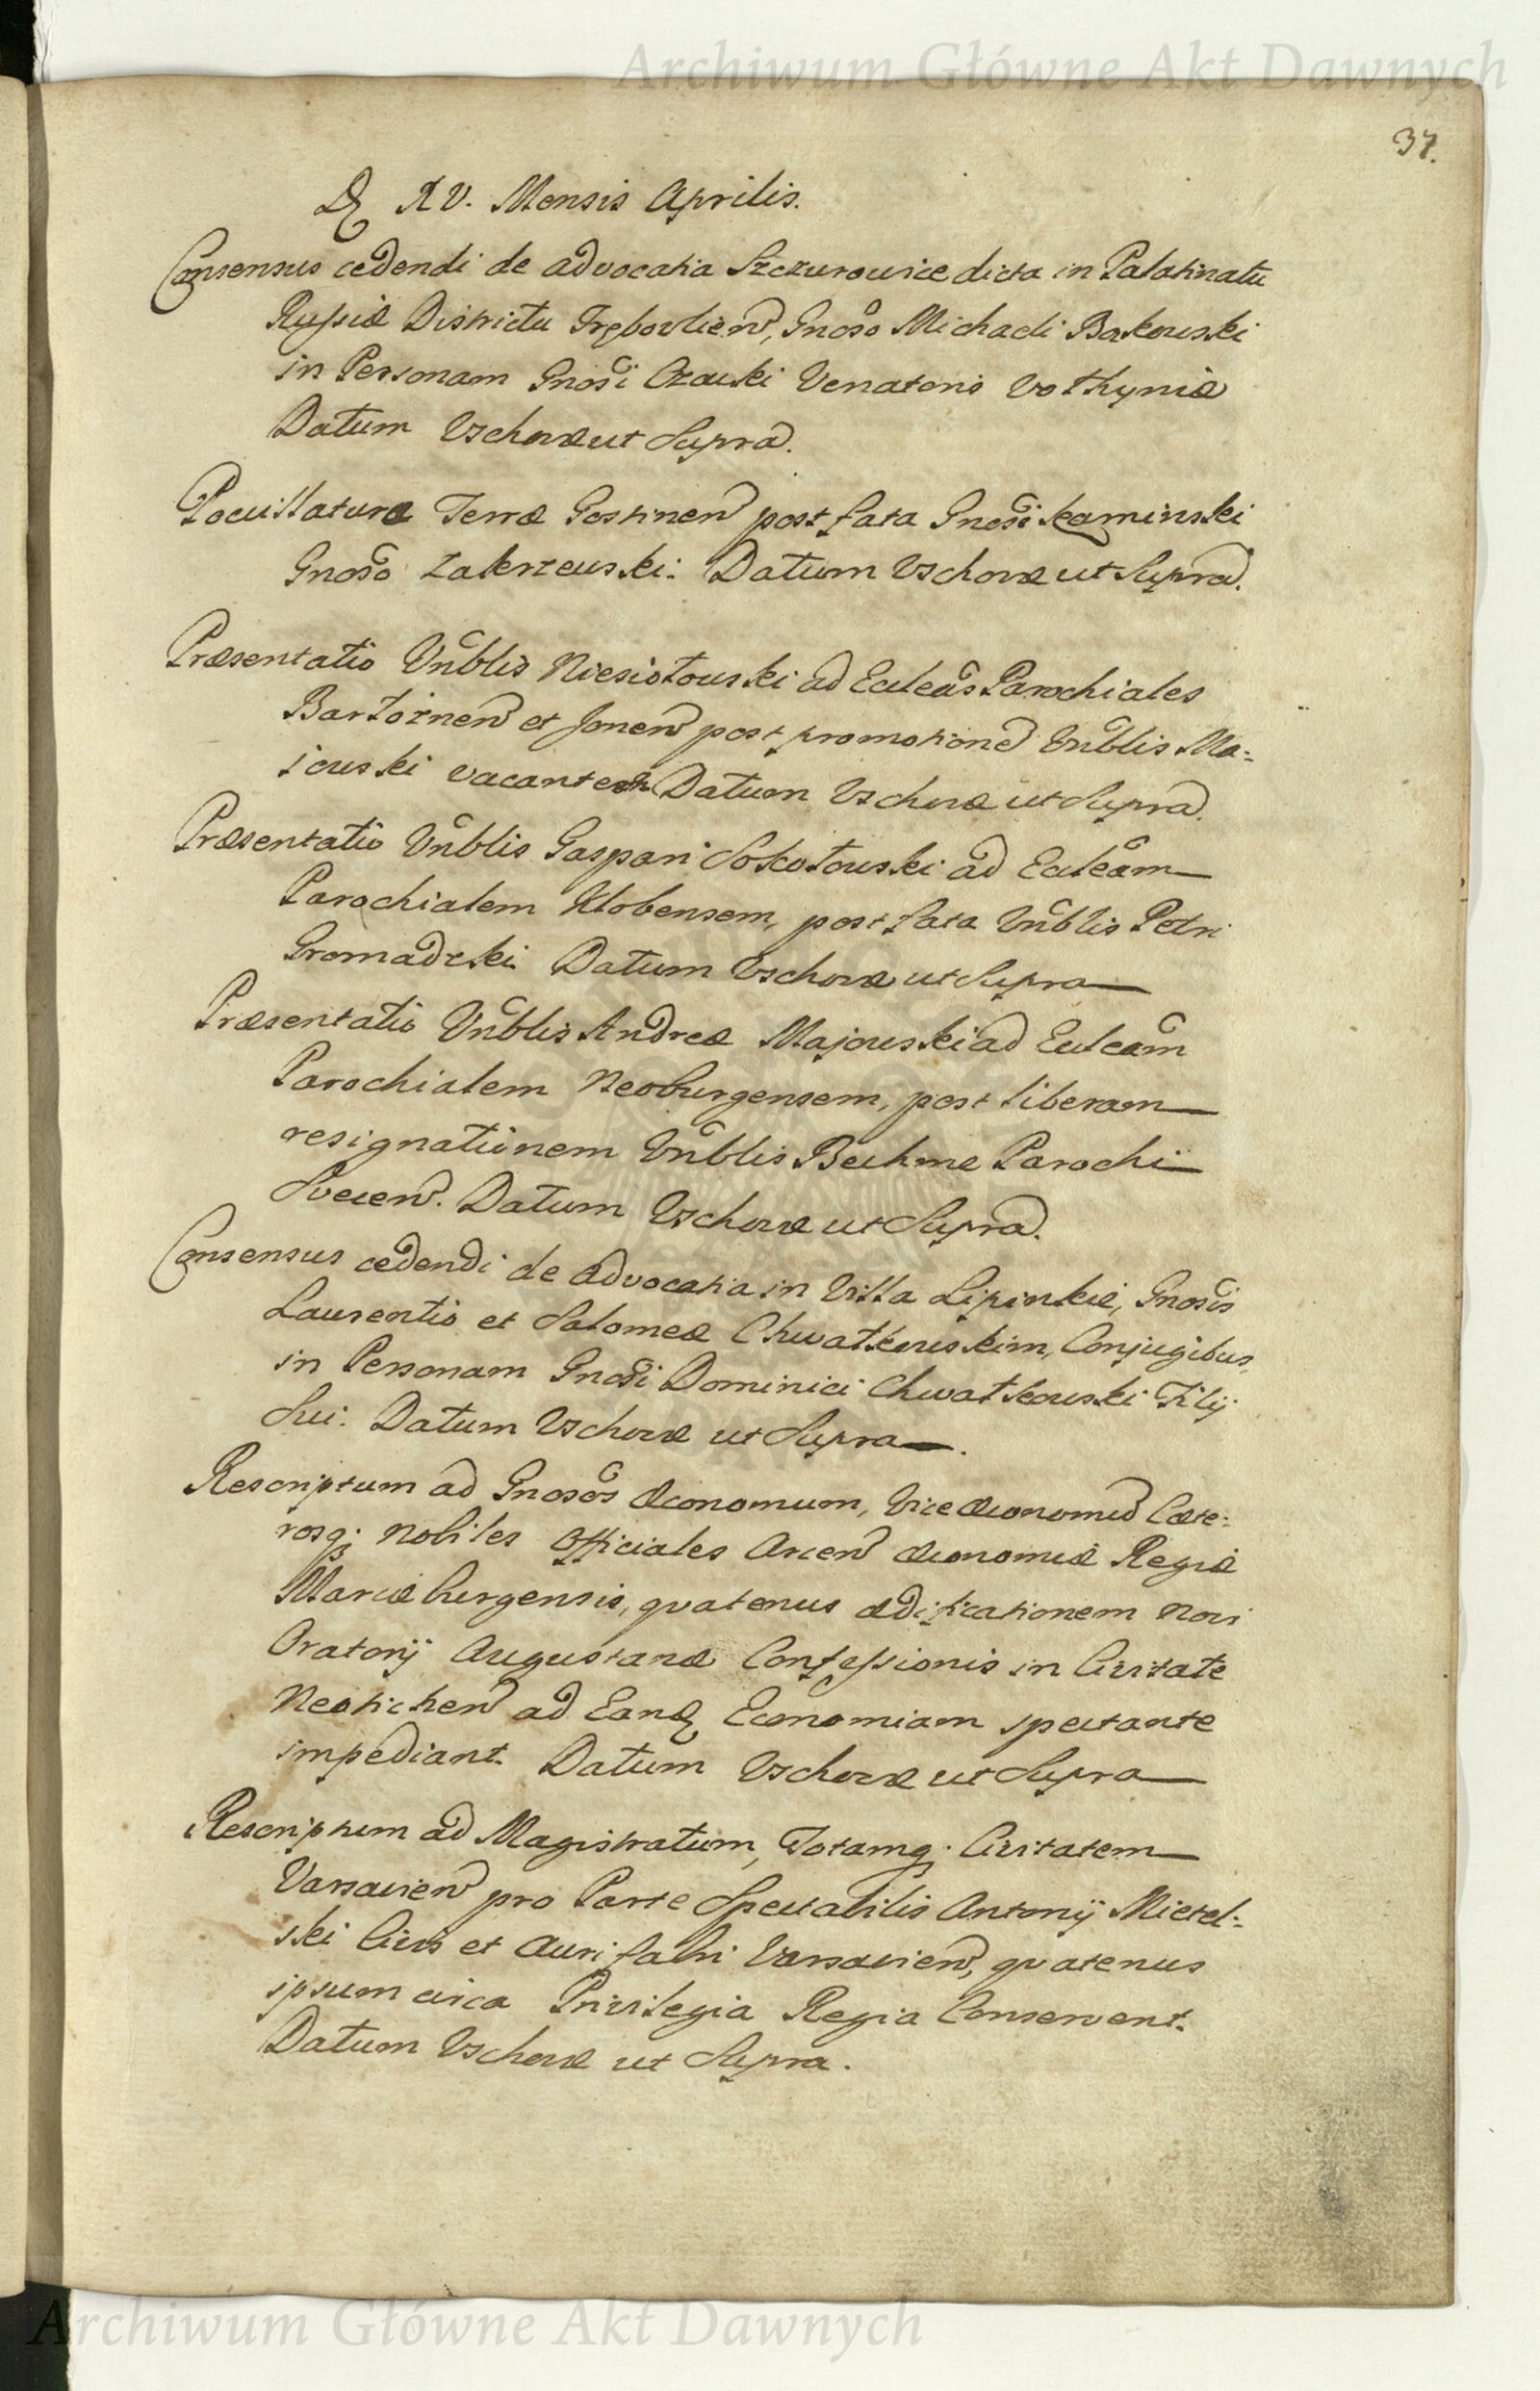 Archiwum Główne Akt Dawnych
37.
D. XV. Mensis Aprilis.
Consensus cedendi de advocatia Szczurowice dicta in Palatinatu
Russiæ Districtu Trębowlien, Gnoso Michaeli Bakowski
in Personam Gnosi Czacki Venatoris Volhyniæ
Datum Vschovæ ut Supra.
Pocillaturæ Terræ Gostinen post fata Gnosi Kaminski
Gnoso Zakrzewski. Datum Vschovæ ut Supra.
Præsentatio Vnblis Niesiołowski ad Eccleas Parochiales
Bartoznen et Jonen post promotione Vnblis Ma-
iewski vacantes Datum Vschovæ ut Supra.
Præsentatio Vnblis Gaspari Sokołowski ad Eccleam
Parochialem Klobensem, post fata Vnblis Petri
Gromadzki. Datum Vschovæ ut Supra
Præsentatio Vnblis Andreæ Majowski ad Eccleam
Parochialem Neoburgensem, post liberam
resignationem Vnblis Bechme Parochi
Svecen. Datum Vschovæ ut Supra.
Consensus cedendi de advocatia in Villa Lipinkie, Gnosis
Laurentio et Salomeæ Chwałkowskim, Conjugibus,
in Personam Gnosi Dominici Chwałkowski Filij
Sui. Datum Vschovæ ut Supra.
Rescriptum ad Gnosos Œconomum, Vice Œconomu Cæte-
rosq; nobiles Officiales Arcen Œconomiæ Regiæ
Mariæburgensis, qvatenus ædificationem novi
Oratorij Augustanæ Confessionis in Civitate
Neotichen ad Eand Economiam spectante
impediant. Datum Vschovæ ut Supra
Rescriptum ad Magistratum, Totamq; Civitatem
Varsavien pro Parte Spectabilis Antonij Mietel-
ski Civis et Aurifabri Varsavien, qvatenus
ipsum circa Privilegia Regia Conservent.
Datum Vschovæ ut Supra.
Archiwum Główne Akt Dawnych